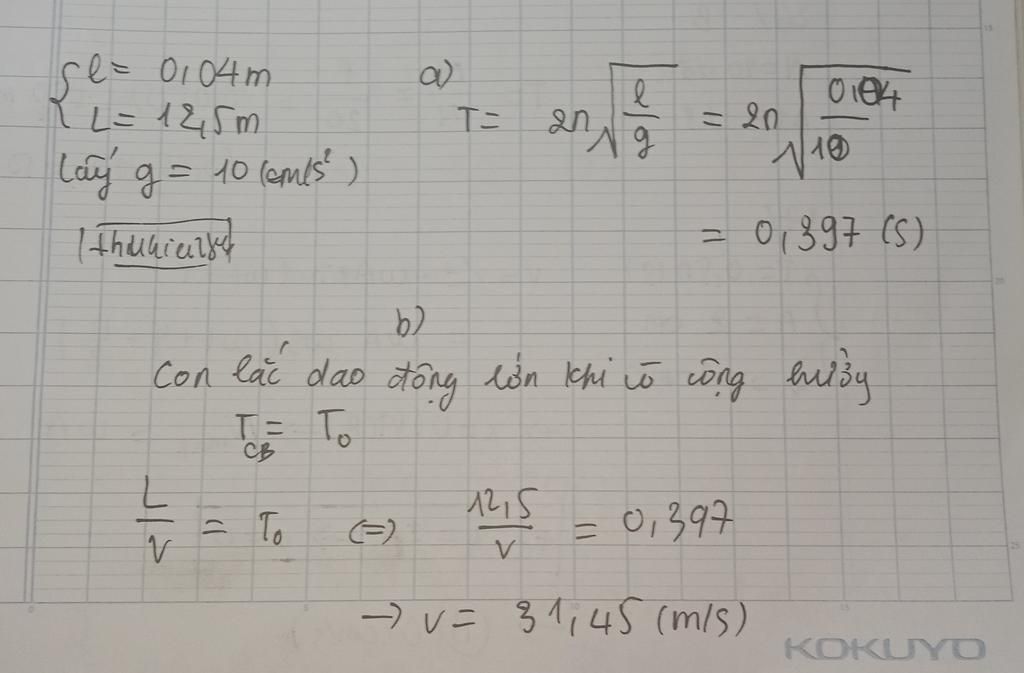 l = 0,04m
L = 12,5m
lấy g = 10 (cm/s²)
a)
T = 2π√(l/g) = 2π√(0,04/10)
= 0,397 (s)
b)
con lắc dao động lớn khi có cộng hưởng
T_CB = T₀
L/v = T₀ (=) 12,5/v = 0,397
→ v = 31,45 (m/s)
KOKUYO